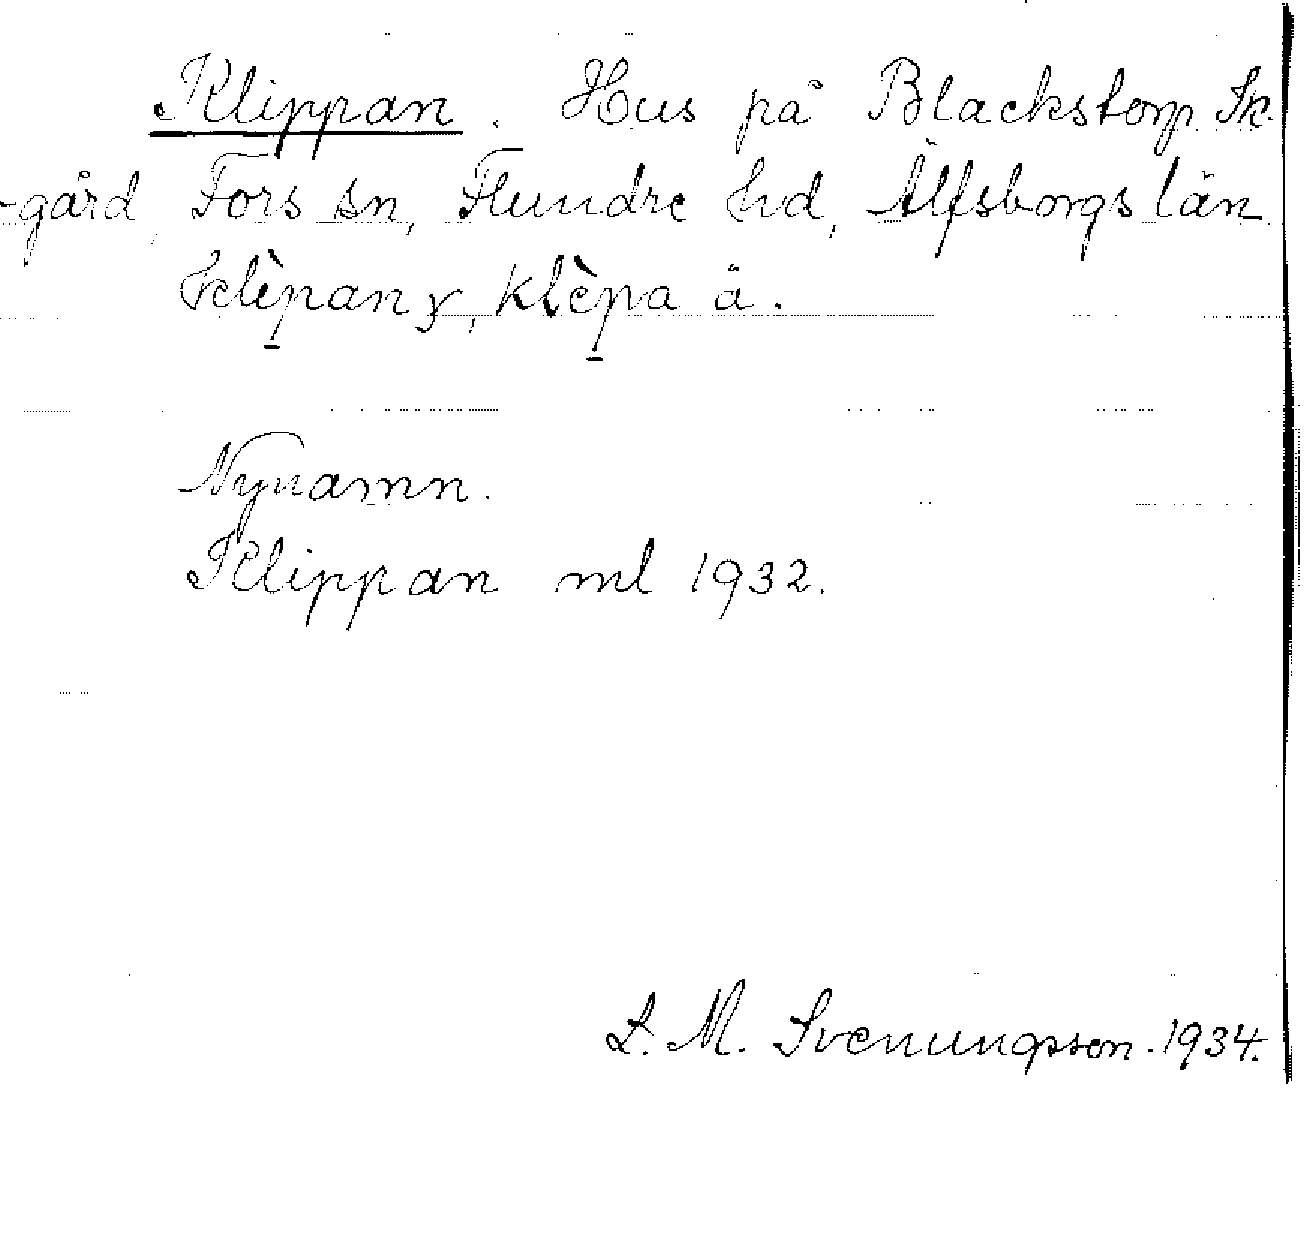 Klippan. Hus på Blackstorp Sk.
-gård, Fors sn, Flundre hd, Älfsborgs län.
klèpan, klèpa ä.
Nynamn.
Klippan ml 1932.
L. M. Svenungsson. 1934.